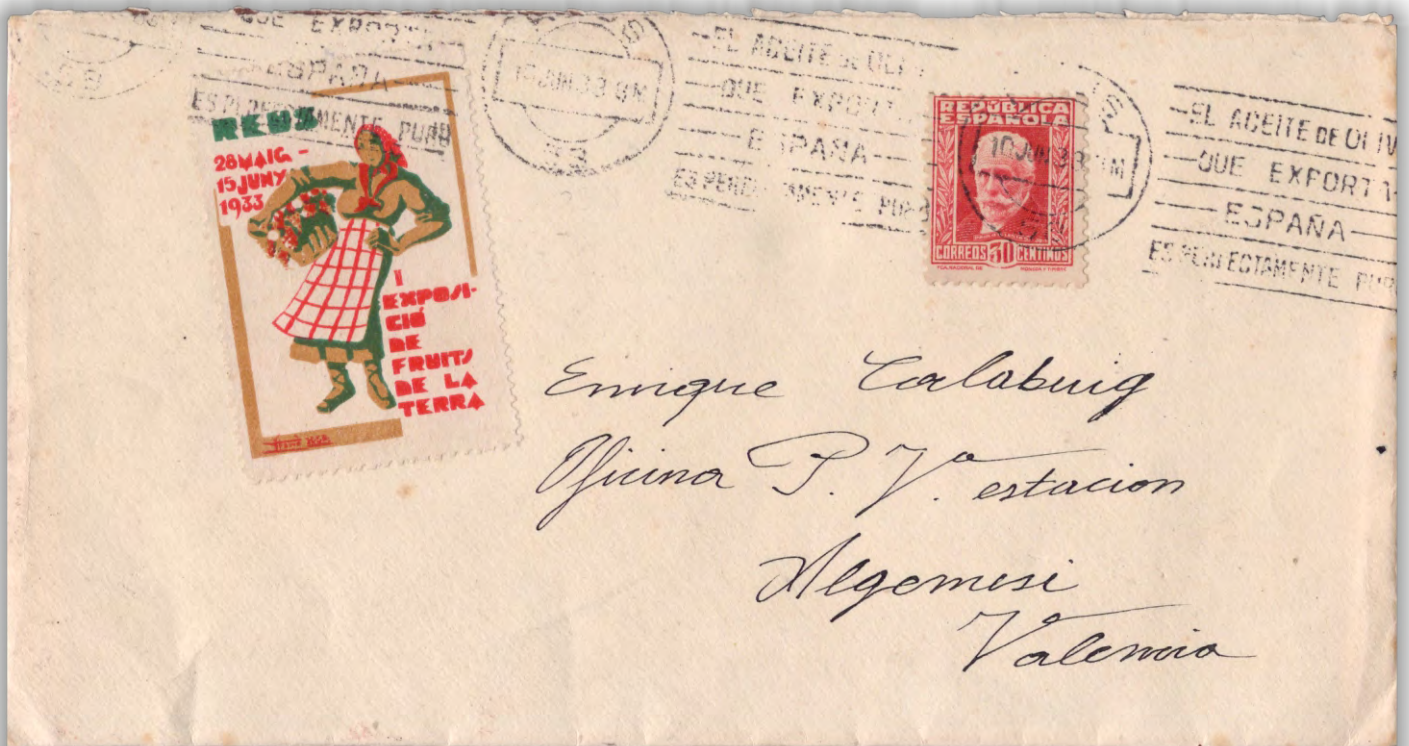 QUE EXPORTA
ESPAÑA
ES PERFECTAMENTE PURO
REUS
28 MAIG -
15 JUNY
1933
I
EXPOSI-
CIÓ
DE
FRUITS
DE LA
TERRA
JUN 33
33
EL ACEITE DE OLI
QUE EXPORT
ESPAÑA
ES PERFECTAMENTE PURO
REPÚBLICA
ESPAÑOLA
CORREOS 30 CENTIMOS
10 JUN 33
EL ACEITE DE OLIV
QUE EXPORTA
ESPAÑA
ES PERFECTAMENTE PUR
Enrique Calabuig
Oficina P. Vª estacion
Algemesi
Valencia